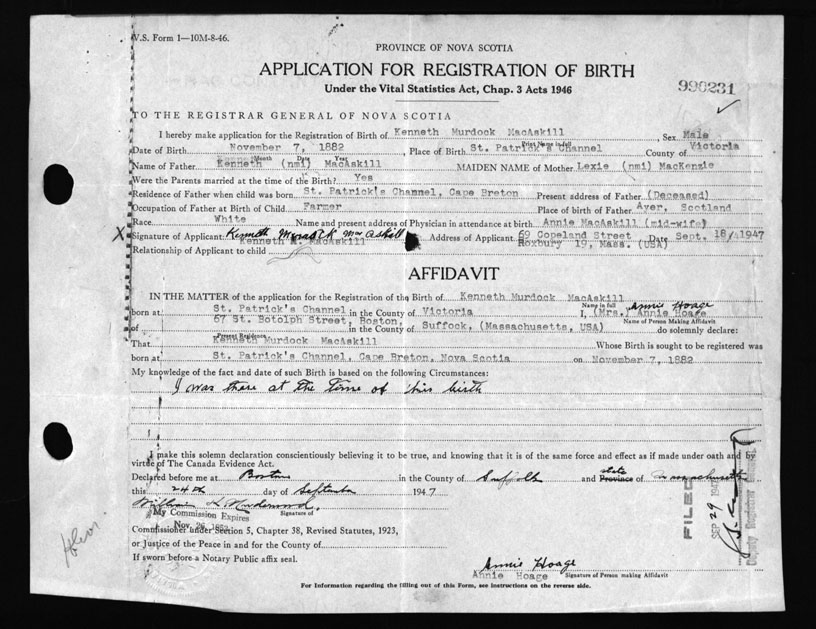 V.S. Form 1—10M-8-46.
PROVINCE OF NOVA SCOTIA
APPLICATION FOR REGISTRATION OF BIRTH
990231
Under the Vital Statistics Act, Chap. 3 Acts 1946
TO THE REGISTRAR GENERAL OF NOVA SCOTIA
I hereby make application for the Registration of Birth of Kenneth Murdock MacAskill, Sex Male
Print Name in full
Date of Birth November 7, 1882, Place of Birth St. Patrick's Channel County of Victoria
Month Date Year
Name of Father Kenneth (nmi) MacAskill MAIDEN NAME of Mother Lexie (nmi) MacKenzie
Were the Parents married at the time of the Birth? Yes
Residence of Father when child was born St. Patrick's Channel, Cape Breton Present address of Father (Deceased)
Occupation of Father at Birth of Child Farmer Place of birth of Father Ayer, Scotland
Race White Name and present address of Physician in attendance at birth Annie MacAskill (mid-wife)
X Signature of Applicant: Kenneth Murdock MacAskill Address of Applicant 69 Copeland Street Date Sept. 18/1947
Kenneth M. MacAskill Roxbury 19, Mass. (USA)
Relationship of Applicant to child
AFFIDAVIT
IN THE MATTER of the application for the Registration of the Birth of Kenneth Murdock MacAskill Annie Hoage
Name in full
born at St. Patrick's Channel in the County of Victoria I, (Mrs.) Annie Hoage
Name of Person Making Affidavit
of 67 St. Botolph Street, Boston, in the County of Suffock, (Massachusetts, USA) do solemnly declare:
Present Residence
That Kenneth Murdock MacAskill Whose Birth is sought to be registered was
born at St. Patrick's Channel, Cape Breton, Nova Scotia on November 7, 1882
My knowledge of the fact and date of such Birth is based on the following Circumstances:
I was there at the time of his birth
I make this solemn declaration conscientiously believing it to be true, and knowing that it is of the same force and effect as if made under oath and by
virtue of The Canada Evidence Act.
Declared before me at Boston in the County of Suffolk and Province state of Massachusetts
this 24th day of September 1947
William L.
Signature of
My Commission Expires
Nov. 26
Commissioner under Section 5, Chapter 38, Revised Statutes, 1923,
or Justice of the Peace in and for the County of
If sworn before a Notary Public affix seal.
Annie Hoage
Annie Hoage Signature of Person making Affidavit
For Information regarding the filling out of this Form, see instructions on the reverse side.
FILED
SEP 29 1947
Deputy Registrar General